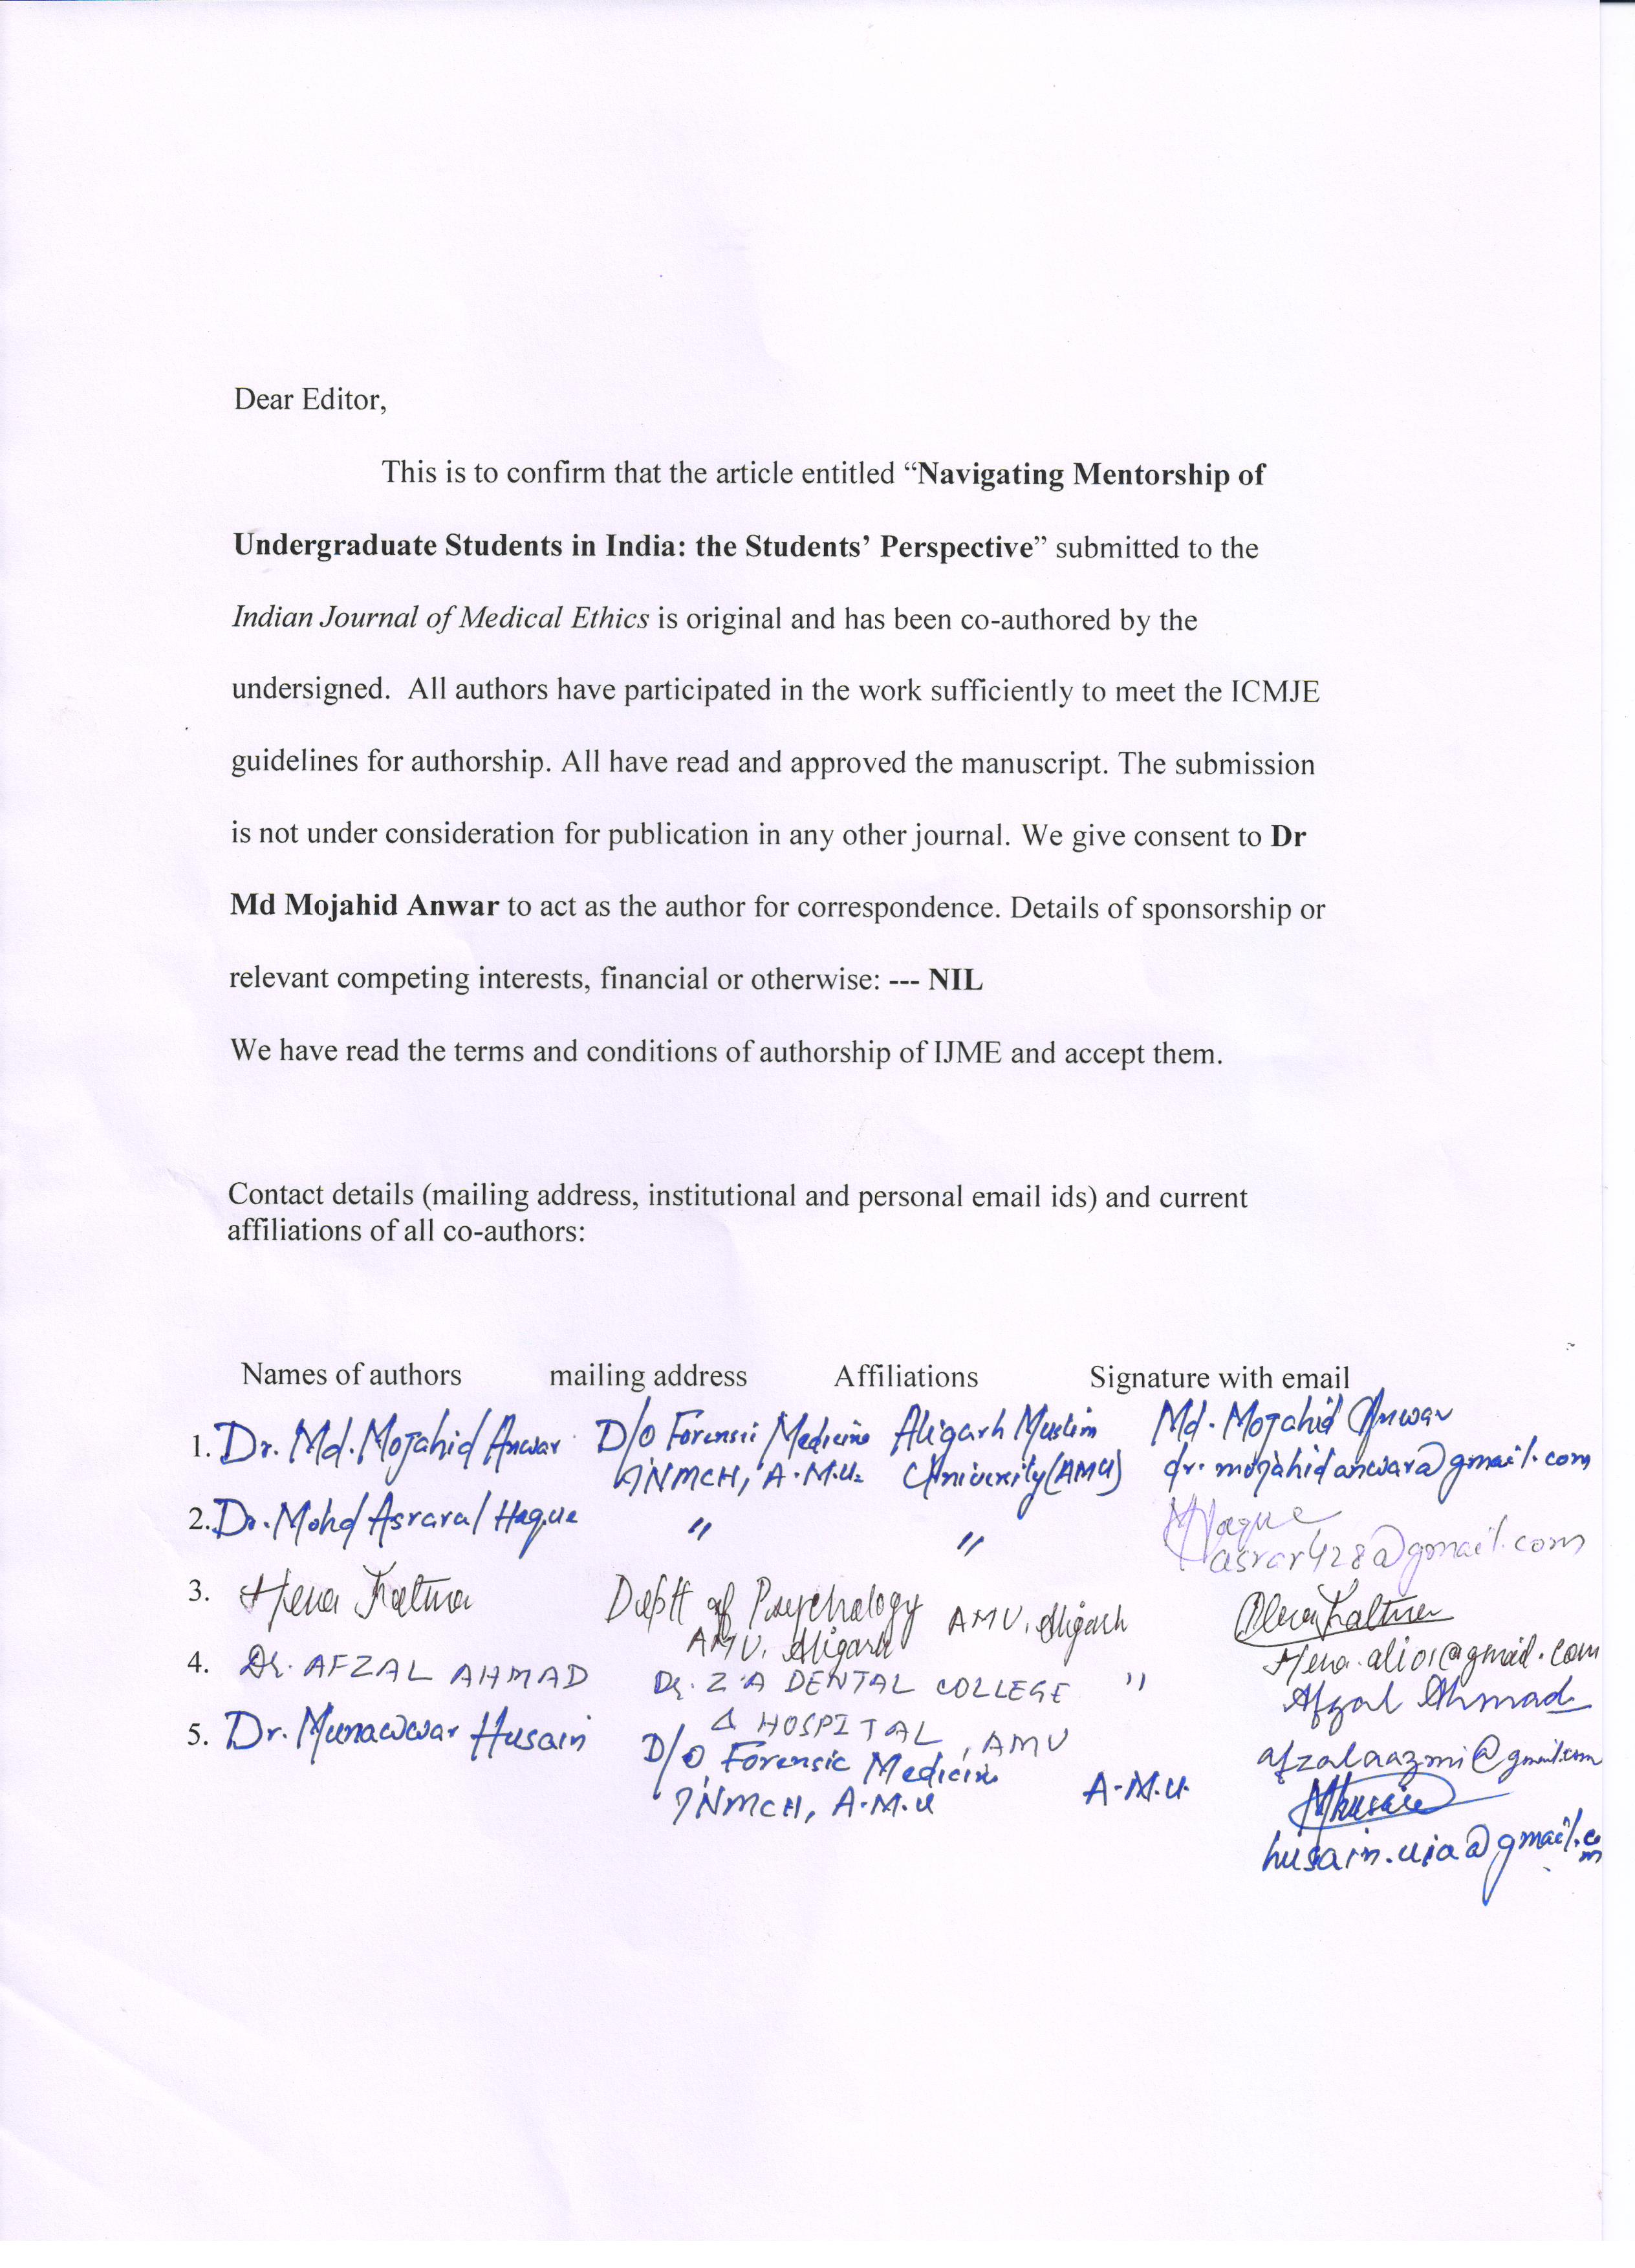 Dear Editor,
This is to confirm that the article entitled “Navigating Mentorship of
Undergraduate Students in India: the Students’ Perspective” submitted to the
Indian Journal of Medical Ethics is original and has been co-authored by the
undersigned.  All authors have participated in the work sufficiently to meet the ICMJE
guidelines for authorship. All have read and approved the manuscript. The submission
is not under consideration for publication in any other journal. We give consent to Dr
Md Mojahid Anwar to act as the author for correspondence. Details of sponsorship or
relevant competing interests, financial or otherwise: --- NIL
We have read the terms and conditions of authorship of IJME and accept them.
Contact details (mailing address, institutional and personal email ids) and current
affiliations of all co-authors:
Names of authors mailing address Affiliations Signature with email
1. Dr. Md. Mojahid Anwar D/o Forensic Medicine Aligarh Muslim Md. Mojahid Anwar
JNMCH, A.M.U. University (AMU) dr.mojahidanwara@gmail.com
2. Dr. Mohd Asrarul Haque " " MHaque
asrar428@gmail.com
3. Hena Fatma Deptt of Psychology AMU, Aligarh Hena Fatma
AMU, Aligarh Hena.ali01@gmail.com
4. Dr. AFZAL AHMAD Dr. Z A DENTAL COLLEGE " Afzal Ahmad
& HOSPITAL, AMU afzalaazmi@gmail.com
5. Dr. Munawwar Husain D/o Forensic Medicine A.M.U. MHusain
JNMCH, A.M.U husain.uia@gmail.com